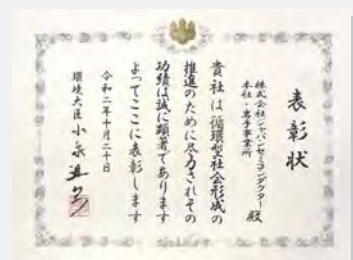 表彰状
株式会社ジャパンセミコンダクター
本社・岩手事業所 殿
貴社は循環型社会形成の
推進のために尽力されその
功績は誠に顕著であります
よってここに表彰します
令和二年十月二十日
環境大臣 小泉進次郎